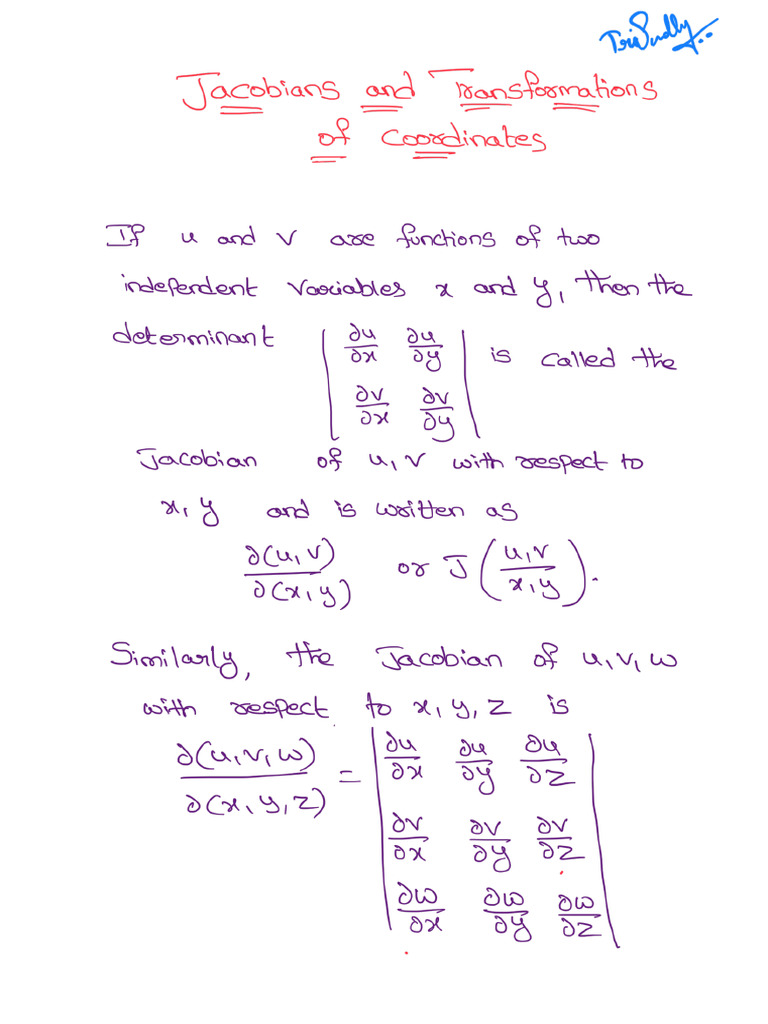 Jacobians and Transformations
of Coordinates
If u and v are functions of two
independent variables x and y, then the
determinant | ∂u/∂x ∂u/∂y | is called the
| ∂v/∂x ∂v/∂y |
Jacobian of u, v with respect to
x, y and is written as
∂(u, v)/∂(x, y) or J(u, v/x, y).
Similarly, the Jacobian of u, v, w
with respect to x, y, z is
∂(u, v, w)/∂(x, y, z) = | ∂u/∂x ∂u/∂y ∂u/∂z |
| ∂v/∂x ∂v/∂y ∂v/∂z |
| ∂w/∂x ∂w/∂y ∂w/∂z |